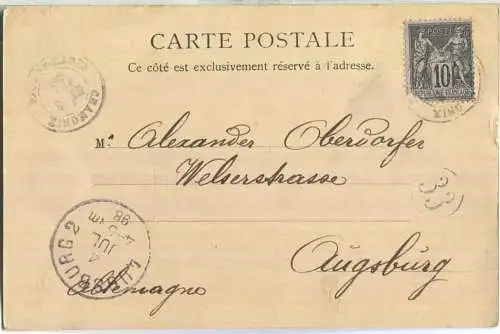 CARTE POSTALE
Ce côté est exclusivement réservé à l'adresse.
POSTES
10
REPUBLIQUE FRANÇAISE
CHAMONIX
M. Alexander Oberdorfer
Welserstrasse
Augsburg
Allemagne
BURG 2
4
JUL
98
33